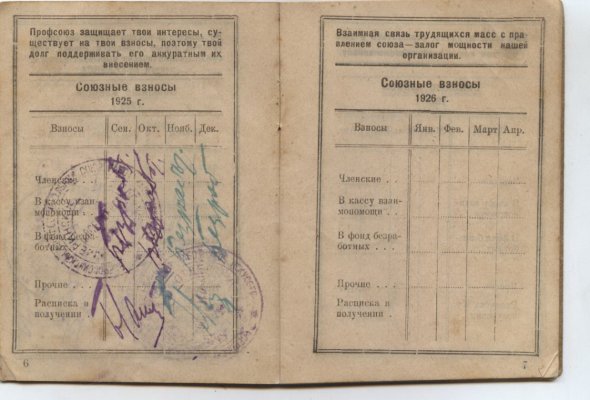 Профсоюз защищает твои интересы, су-
ществует на твои взносы, поэтому твой
долг поддерживать его аккуратным их
внесением.
Союзные взносы
1925 г.
Взносы Сен. Окт. Нояб. Дек.
Членские . .
В кассу взаи-
мопомощи . .
В фонд безра-
ботных . . .
Прочие . . .
Расписка в
получении .
6
Взаимная связь трудящихся масс с пра-
влением союза—залог мощности нашей
организации.
Союзные взносы
1926 г.
Взносы Янв. Фев. Март Апр.
Членские . .
В кассу взаи-
мопомощи . .
В фонд безра-
ботных . . .
Прочие . . .
Расписка в
получении .
7